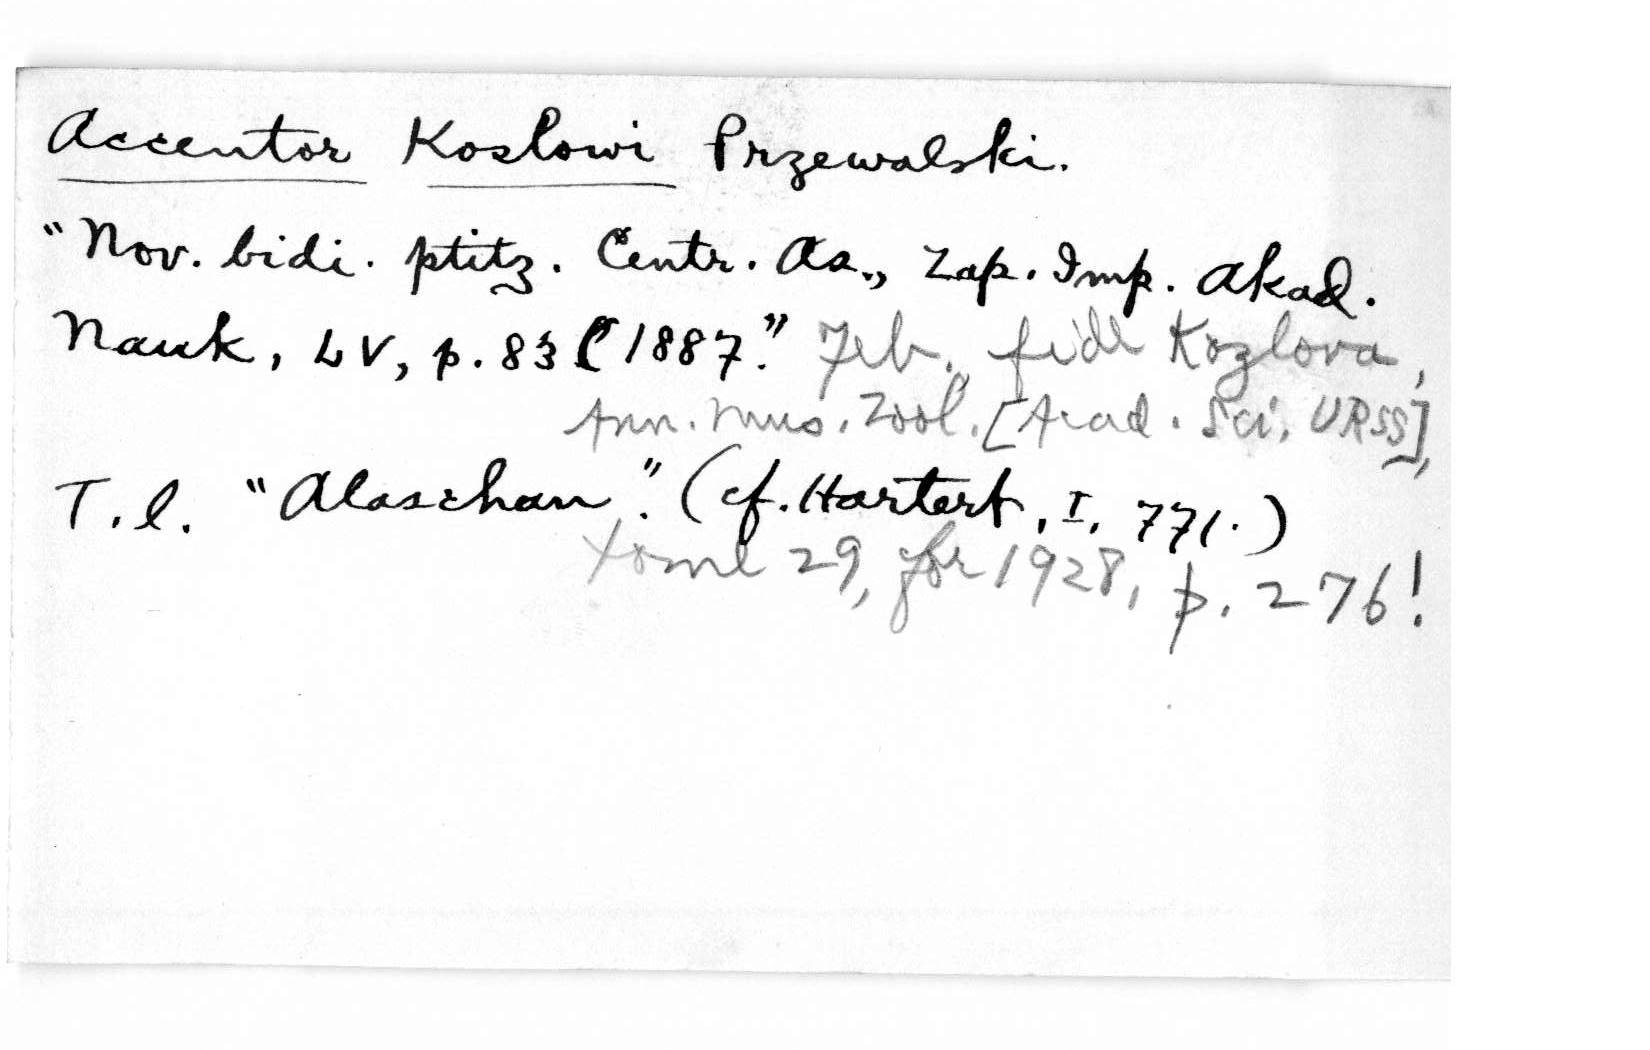 Accentor Koslowi Przewalski.
"Nov. bidi. ptitz. Centr. As., Zap. Imp. Akad.
Nauk, LV, p. 83 (1887." Feb., fide Kozlova,
Ann. Mus. Zool. [Acad. Sci. URSS],
T.l. "Alaschan." (cf. Hartert, I, 771.)
tome 29, for 1928, p. 276!